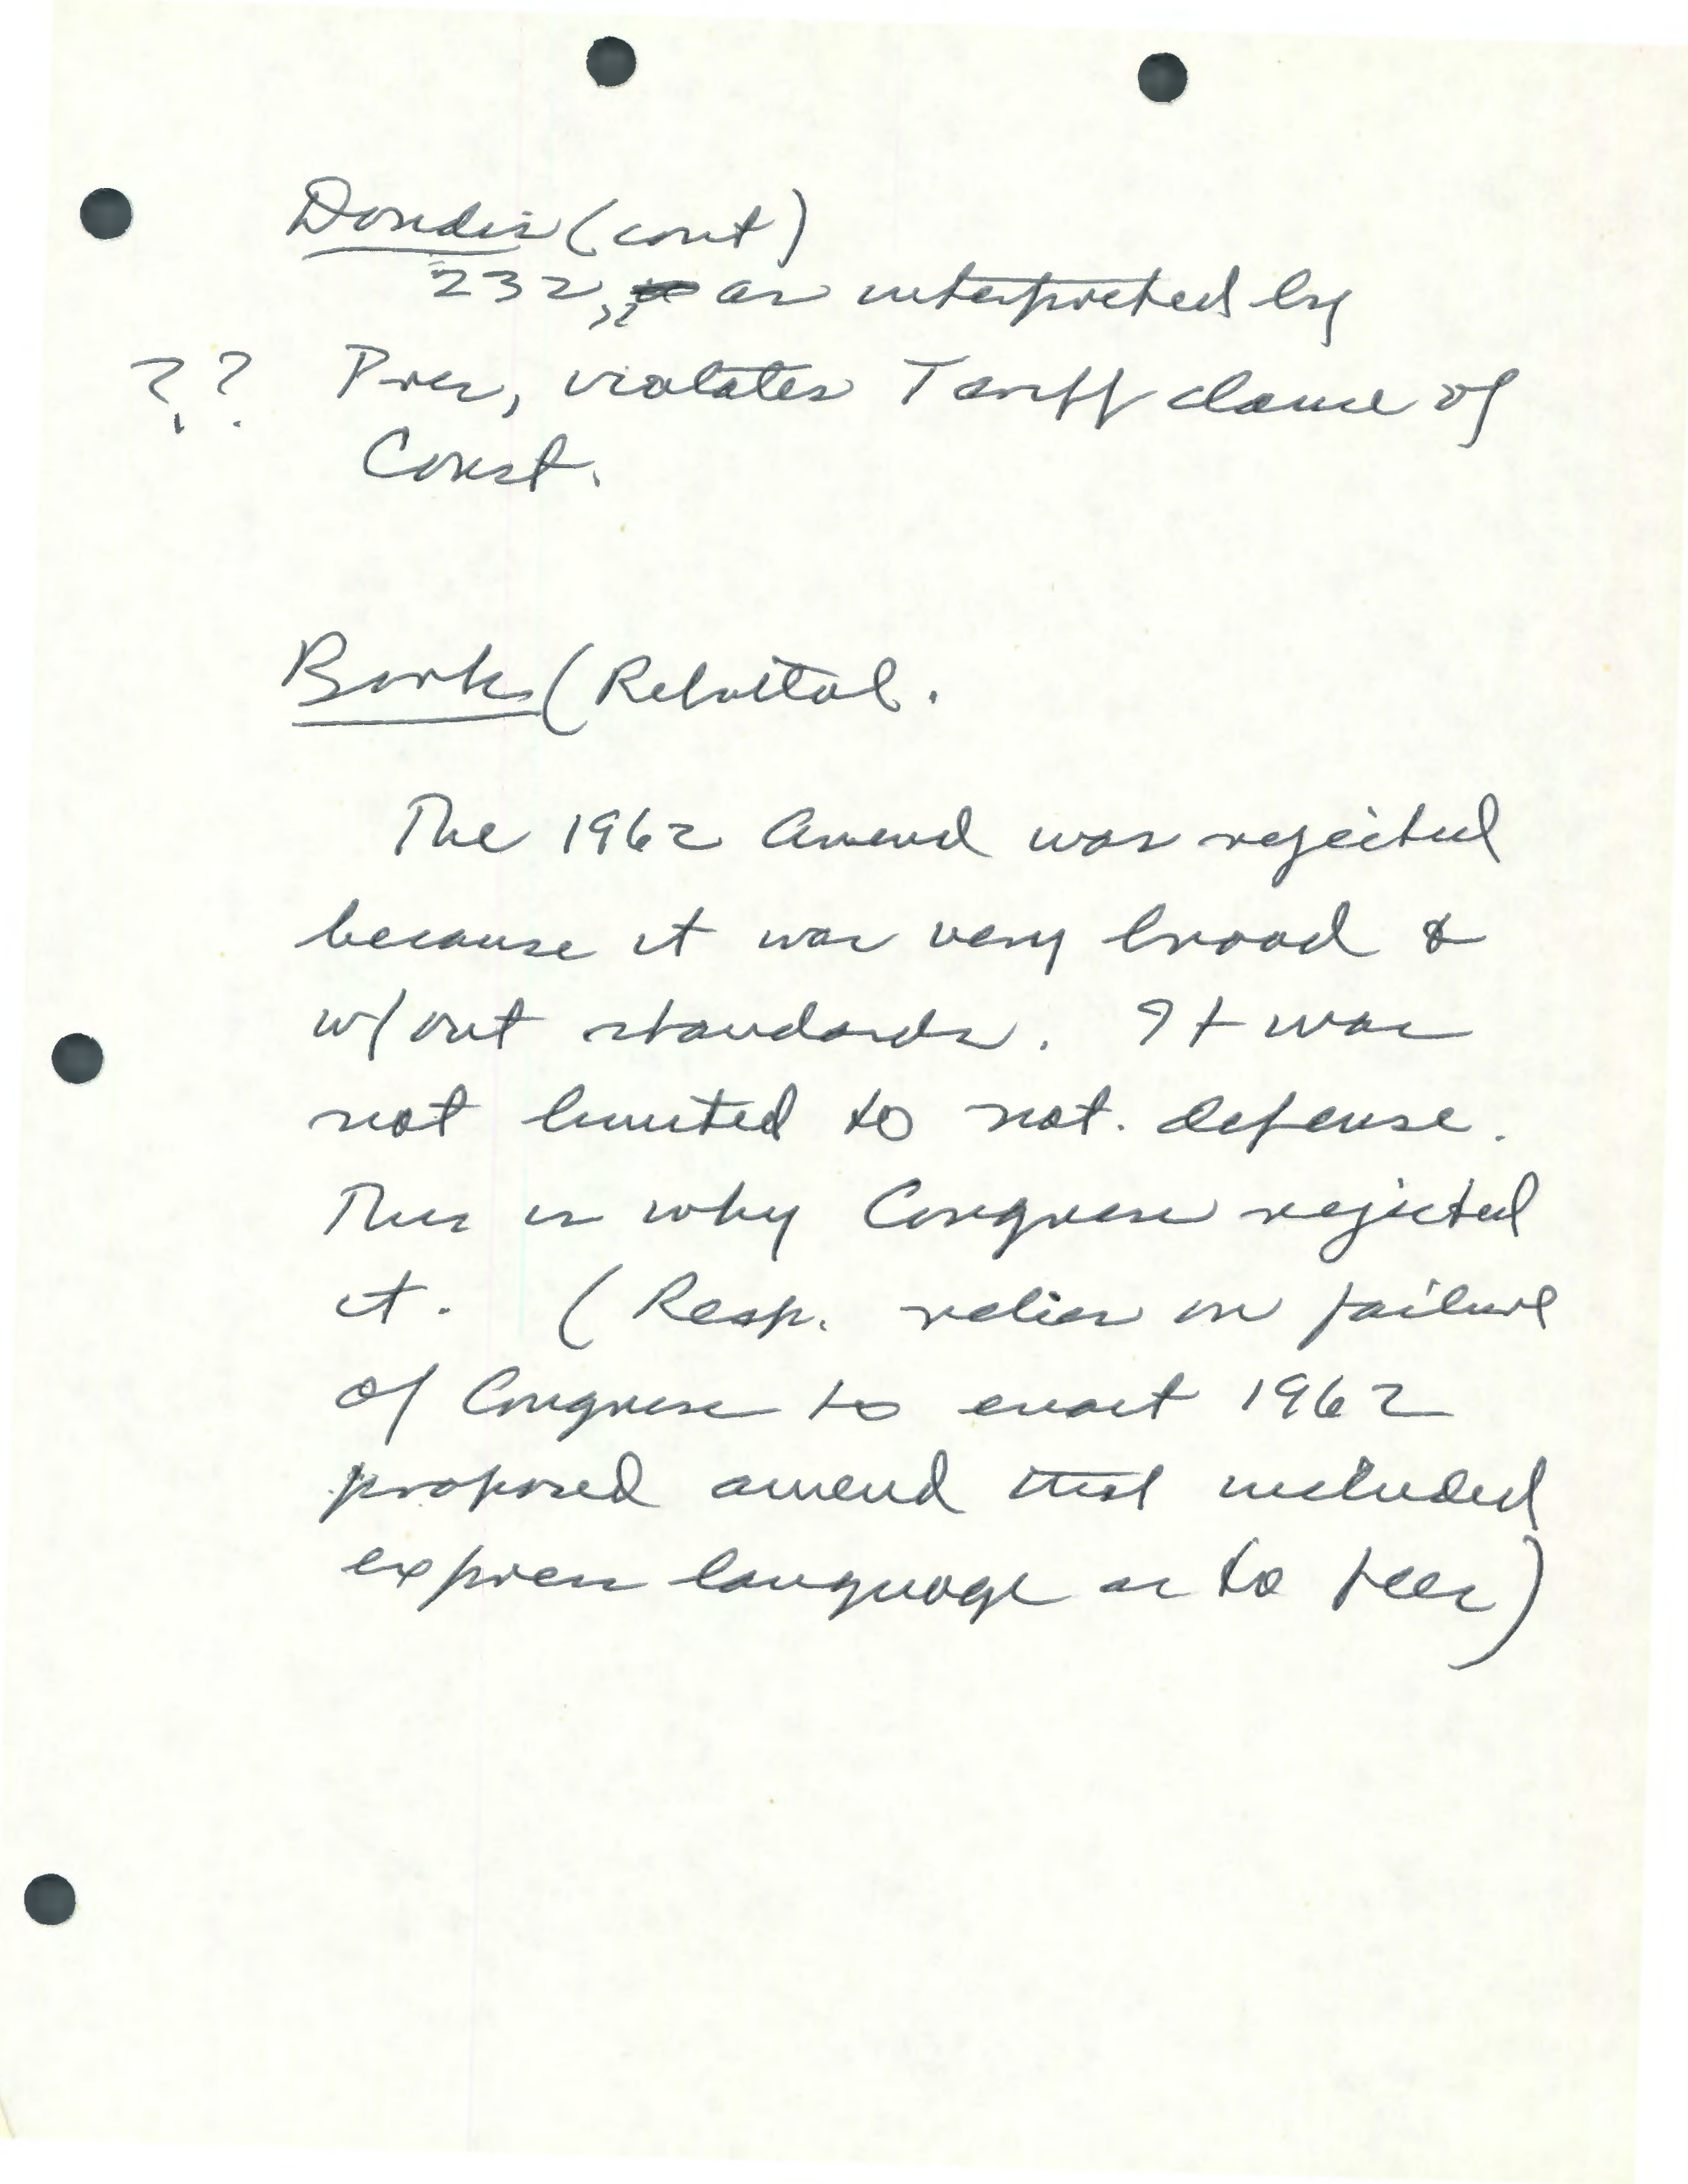 Dondis (cont)
232, as interpreted by
?? Pres, violates Tariff clause of
Const.
Bork (Rebuttal.
The 1962 Amend was rejected
because it was very broad &
w/out standards. It was
not limited to nat. defense.
This is why Congress rejected
it. (Resp. relies on failure
of Congress to enact 1962
proposed amend that included
express language as to fees)